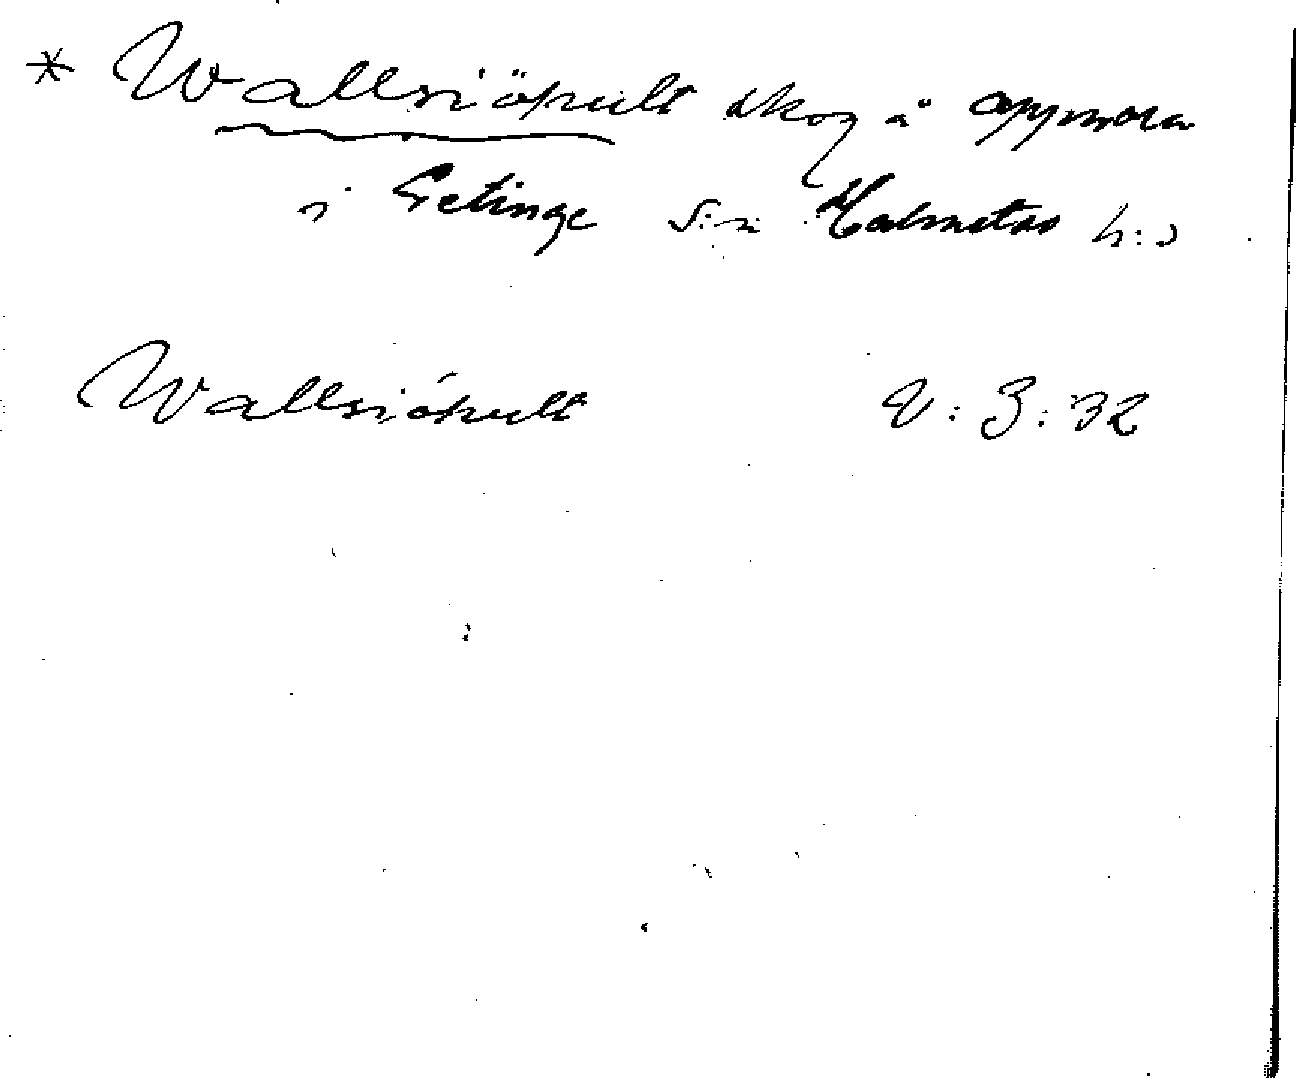 * Wallsiöhult skog å appmora
i Getinge s:n Halmstad h:d
Wallsiöhult V: 3: 32